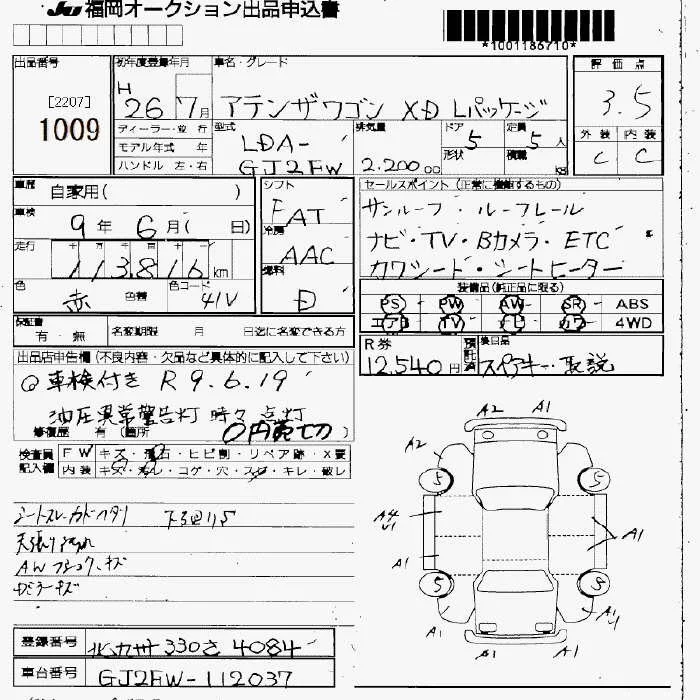 JU 福岡オークション出品申込書
*1001186710*
出品番号
[2207]
1009
初年度登録年月
H 26 7月
車名・グレード
アテンザワゴン XD Lパッケージ
評価点
3.5
外装 内装
C C
ディーラー・並行
モデル年式 年
ハンドル 左・右
型式
LDA-
GJ2FW
排気量
2.200 cc
ドア 5
形状
定員 5人
積載 KG
車歴 自家用( )
車検
9年 6月( 日)
走行
113,816 km
色 赤 色替 色コード 41V
シフト
FAT
冷房
AAC
燃料
D
セールスポイント (正常に機能するもの)
サンルーフ・ルーフレール
ナビ・TV・Bカメラ・ETC
カワシート・シートヒーター
装備品(純正品に限る)
PS PW AW SR ABS
エアB TV ナビ カワ 4WD
保証書
有・無
名変期限 月 日迄に名変できる方
R券
12,540円
預託済
後日品
スペアキー・取説
出品店申告欄 (不良内容・欠品など具体的に記入して下さい)
◎車検付き R9.6.19
油圧異常警告灯 時々点灯
修復歴 有 (箇所 )
0円売切
検査員
記入欄
FW キズ・飛石・ヒビ割・リペア跡・X要
内装 キズ・汚レ・コゲ・穴・スレ・キレ・破レ
天張り汚れ
キズ
キズ
A2 A1
A2
5 5
A4
A1
A1
5
A1
A1
A2 A1
登録番号
北九州 330 さ 4084
車台番号
GJ2FW-112037